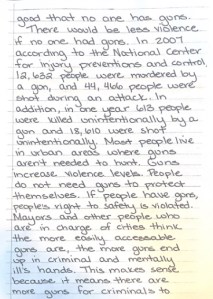 good that no one has guns.
There would be less violence
if no one had guns. In 2007
according to the National Center
for injury preventions and control,
12,632 people were murdered by
a gun, and 44,466 people were
shot during an attack. In
addition, in one year 613 people
were killed unintentionally by a
gun and 18,610 were shot
unintentionally. Most people live
in urban areas where guns
aren't needed to hunt. Guns
increase violence levels. People
do not need guns to protect
themselves. If people have guns,
people's right to safety is violated.
Mayors and other people who
are in charge of cities think
the more easily accessable
guns are, the more guns end
up in criminal and mentally
ill's hands. This makes sense
because it means there are
more guns for criminals to